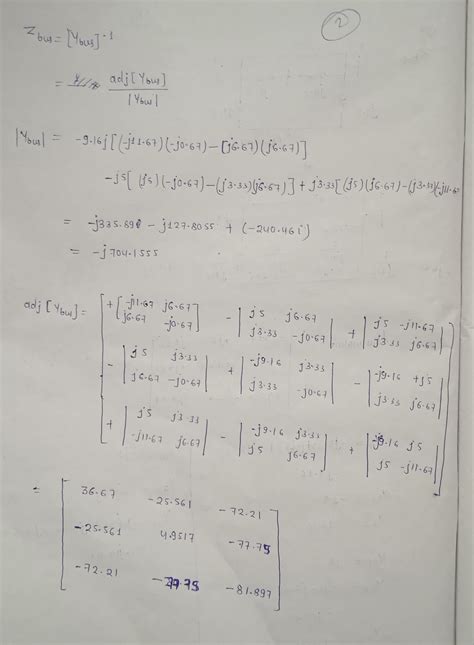 2
Zbus = [Ybus]⁻¹
= adj[Ybus] / |Ybus|
|Ybus| = -9.16j[(-j11.67)(-j0.67) - (j6.67)(j6.67)]
-j5[(j5)(-j0.67) - (j3.33)(j6.67)] + j3.33[(j5)(j6.67) - (j3.33)(-j11.67
= -j335.898 - j127.8055 + (-240.461)
= -j704.1555
adj[Ybus] = +|-j11.67 j6.67| -|j5 j6.67| +|j5 -j11.67|
|j6.67 -j0.67| |j3.33 -j0.67| |j3.33 j6.67|
-|j5 j3.33| +|-j9.16 j3.33| -|-j9.16 +j5|
|j6.67 -j0.67| |j3.33 -j0.67| |j3.33 j6.67|
+|j5 j3.33| -|-j9.16 j3.33| +|-j9.16 j5|
|-j11.67 j6.67| |j5 j6.67| |j5 -j11.67|
= 36.67 -25.561 -72.21
-25.561 4.9517 -77.75
-72.21 -77.75 -81.897